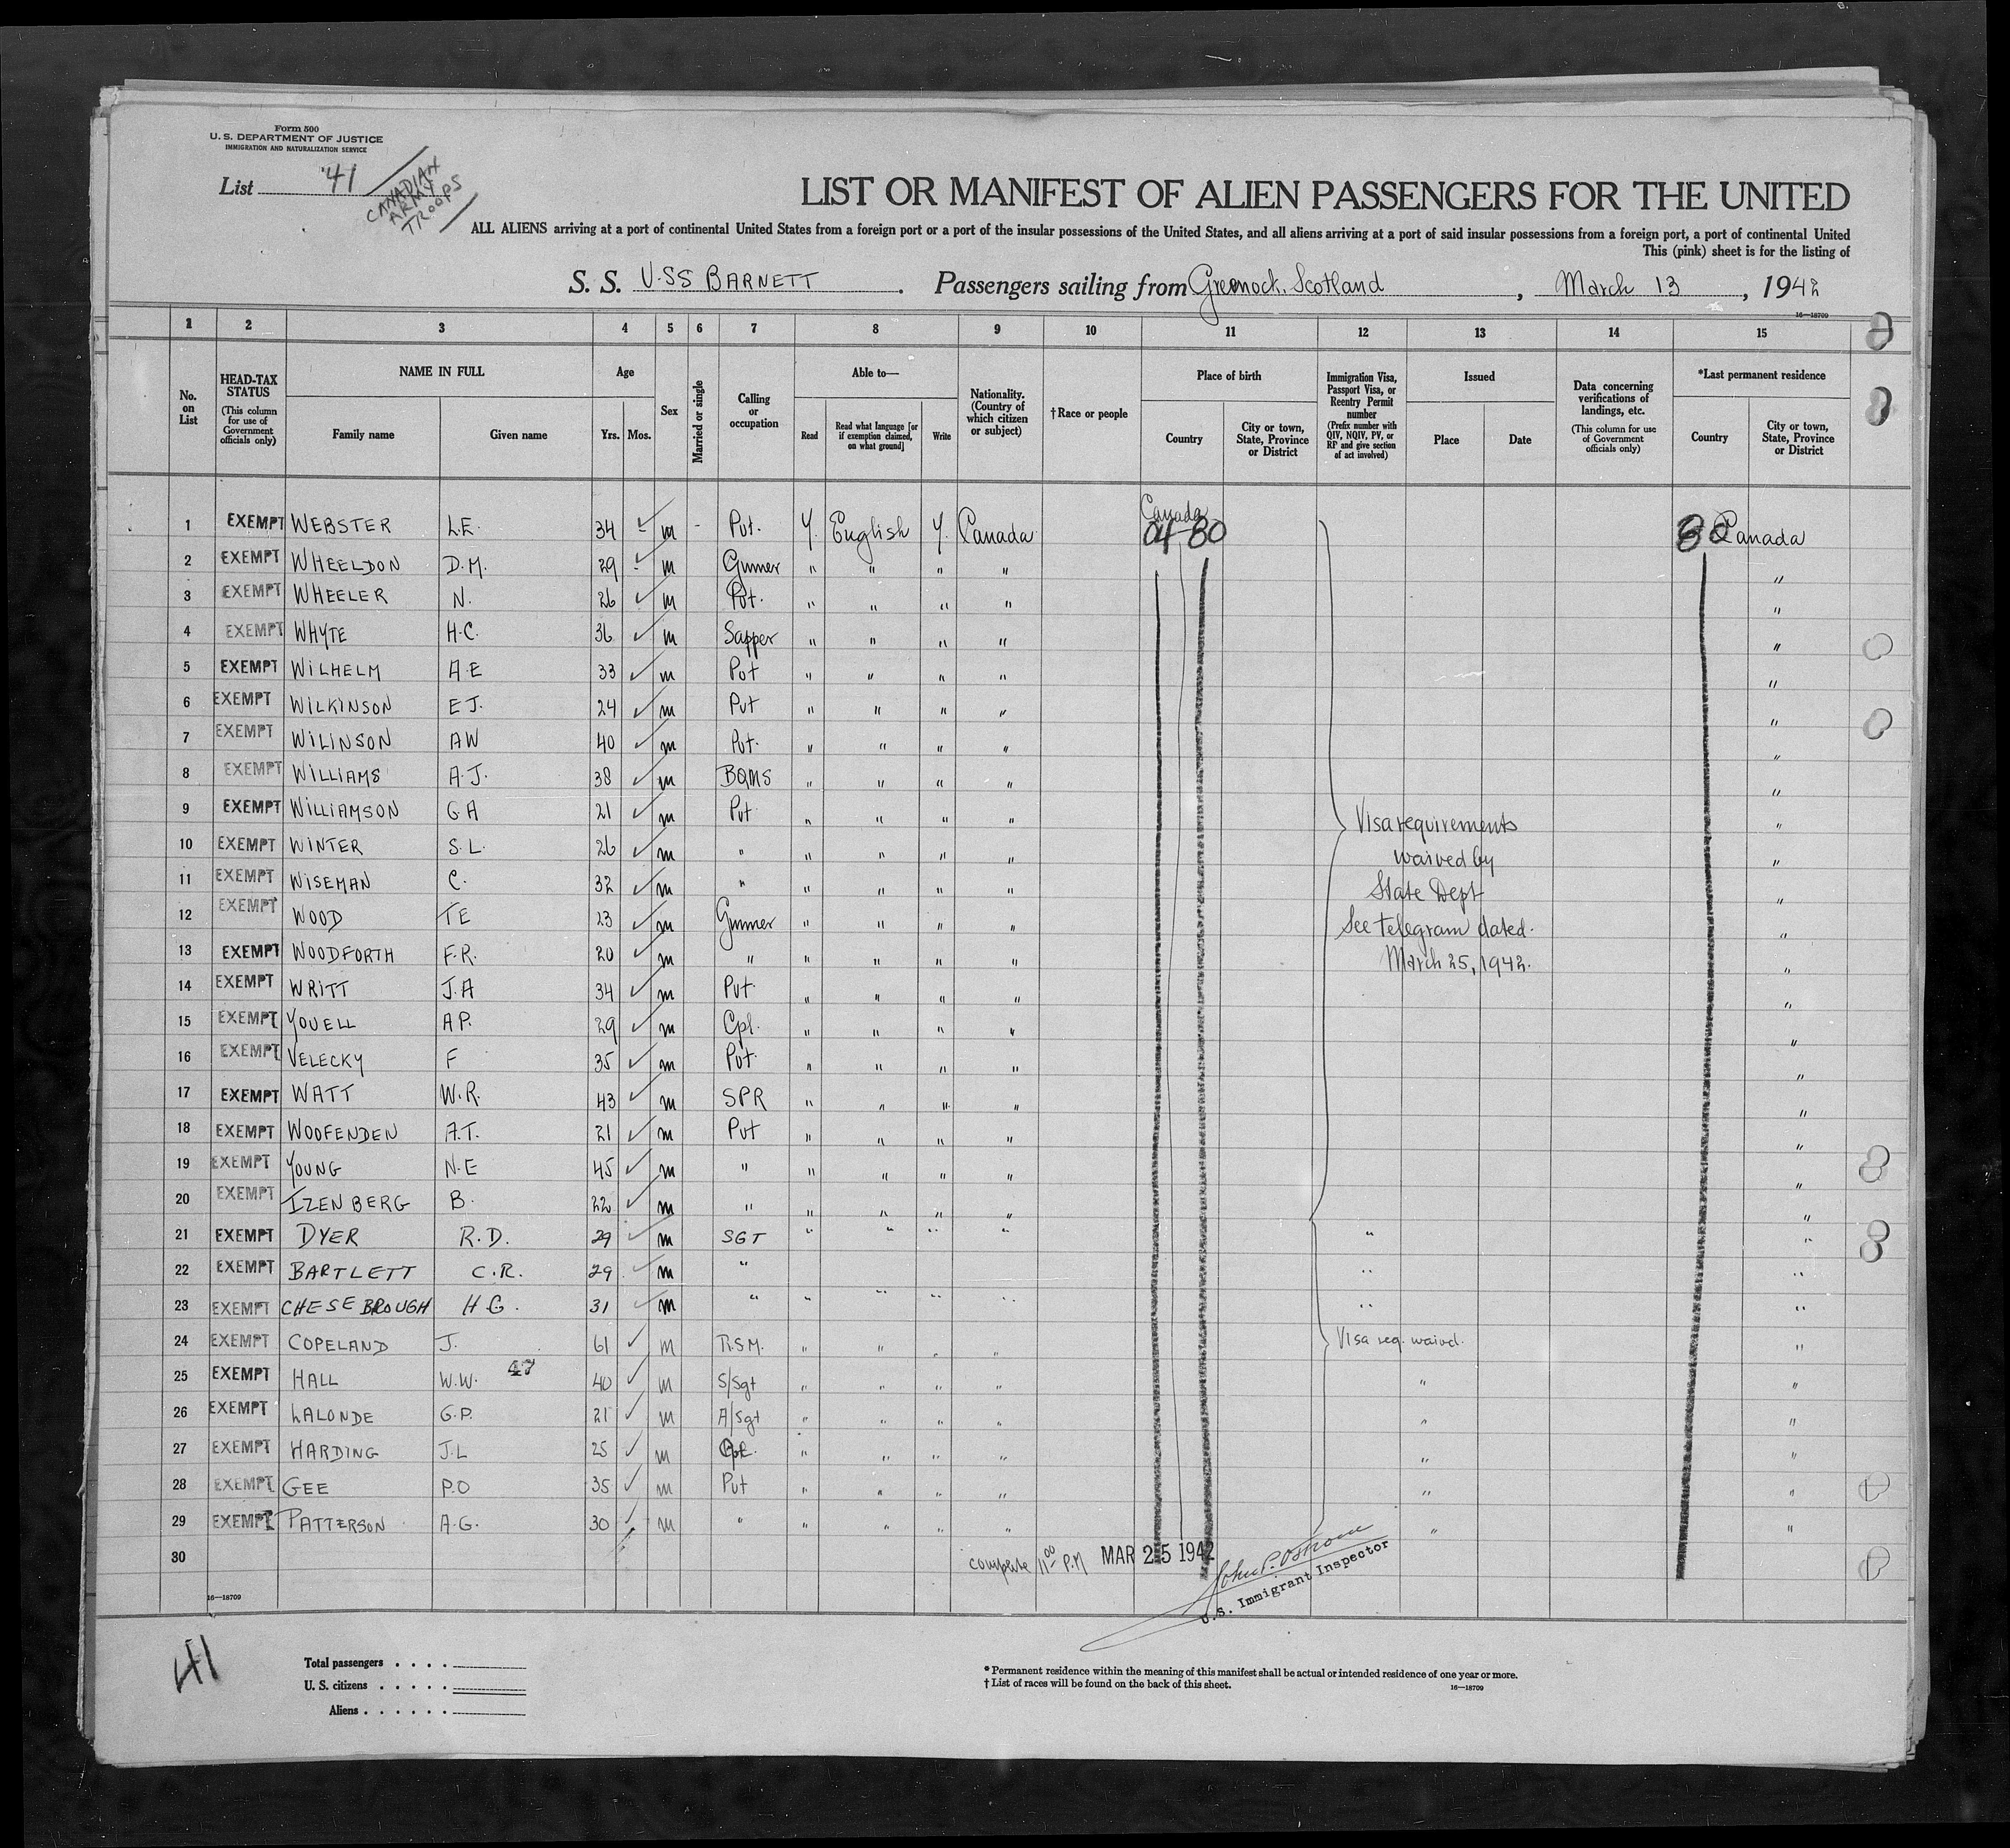 Form 500
U. S. DEPARTMENT OF JUSTICE
IMMIGRATION AND NATURALIZATION SERVICE
List 41
CANADIAN
ARMY
TROOPS
LIST OR MANIFEST OF ALIEN PASSENGERS FOR THE UNITED
ALL ALIENS arriving at a port of continental United States from a foreign port or a port of the insular possessions of the United States, and all aliens arriving at a port of said insular possessions from a foreign port, a port of continental United
This (pink) sheet is for the listing of
S. S. U.SS BARNETT. Passengers sailing from Greenock, Scotland, March 13, 1942
16—18709
1 2 3 4 5 6 7 8 9 10 11 12 13 14 15
No. on List
HEAD-TAX STATUS (This column for use of Government officials only)
NAME IN FULL
Family name Given name
Age
Yrs. Mos.
Sex
Married or single
Calling or occupation
Able to—
Read Read what language [or if exemption claimed, on what ground] Write
Nationality. (Country of which citizen or subject)
†Race or people
Place of birth
Country City or town, State, Province or District
Immigration Visa, Passport Visa, or Reentry Permit number (Prefix number with QIV, NQIV, PV, or RP and give section of act involved)
Issued
Place Date
Data concerning verifications of landings, etc. (This column for use of Government officials only)
*Last permanent residence
Country City or town, State, Province or District
1 EXEMPT WEBSTER L.E. 34 ✓ - m - Pvt. Y. English Y. Canada Canada 04 80 80 Canada
2 EXEMPT WHEELDON D.M. 29 ✓ - m Gunner " " " " "
3 EXEMPT WHEELER N. 26 ✓ m Pvt. " " " " "
4 EXEMPT WHYTE H.C. 36 ✓ m Sapper " " " " "
5 EXEMPT WILHELM A E 33 ✓ m Pvt " " " " "
6 EXEMPT WILKINSON E J. 24 ✓ m Pvt " " " " "
7 EXEMPT WILINSON AW 40 ✓ m Pvt. " " " " "
8 EXEMPT WILLIAMS A.J. 38 ✓ m BQMS " " " " "
9 EXEMPT WILLIAMSON G A 21 ✓ m Pvt " " " " Visa requirements "
10 EXEMPT WINTER S.L. 26 ✓ m " " " " " waived by "
11 EXEMPT WISEMAN C. 32 ✓ m " " " " " State Dept "
12 EXEMPT WOOD T E 23 ✓ m Gunner " " " " See telegram dated. "
13 EXEMPT WOODFORTH F.R. 20 ✓ m " " " " " March 25, 1942. "
14 EXEMPT WRITT J.A 34 ✓ m Pvt. " " " " "
15 EXEMPT YOUELL A P. 29 ✓ m Cpl. " " " " "
16 EXEMPT VELECKY F 35 ✓ m Pvt. " " " " "
17 EXEMPT WATT W.R. 43 ✓ m SPR " " " " "
18 EXEMPT WOOFENDEN A.T. 21 ✓ m Pvt " " " " "
19 EXEMPT YOUNG N.E 45 ✓ m " " " " " "
20 EXEMPT IZENBERG B. 22 ✓ m " " " " " "
21 EXEMPT DYER R.D. 29 ✓ m SGT " " " " " "
22 EXEMPT BARTLETT C.R. 29 ✓ m " " "
23 EXEMPT CHESEBROUGH H G. 31 ✓ m " " " " " " "
24 EXEMPT COPELAND J. 61 ✓ m R.S.M. " " " " Visa req. waived. "
25 EXEMPT HALL W.W. 47 40 ✓ m S/Sgt " " " " " "
26 EXEMPT LALONDE G.P. 21 ✓ m A/Sgt " " " " " "
27 EXEMPT HARDING J.L 25 ✓ m Cpl. " " " " " "
28 EXEMPT GEE P.O 35 ✓ m Pvt " " " " " "
29 EXEMPT PATTERSON A.G. 30 ✓ m " " " " " " "
30 complete 11 00 P.M MAR 25 1942
John P. Ostrom
U.S. Immigrant Inspector
16—18709
41
Total passengers
U. S. citizens
Aliens
* Permanent residence within the meaning of this manifest shall be actual or intended residence of one year or more.
† List of races will be found on the back of this sheet.
16—18709